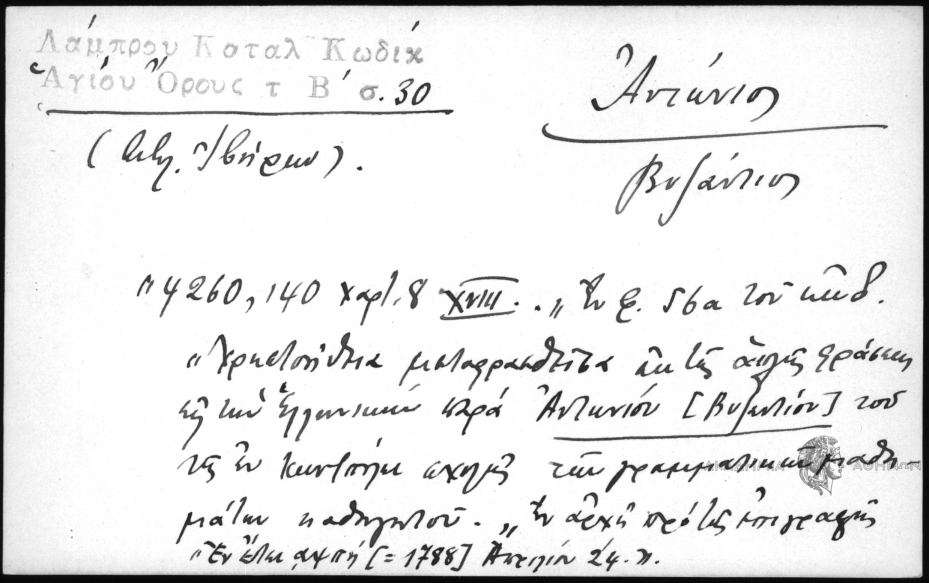 Λάμπρου Καταλ Κωδίκ
Ἁγίου Ὄρους τ Β΄ σ. 30
Ἀντώνιος
(Μον. Ἰβήρων).
Βυζάντιος
"4260, 140 χαρτ. 8 XVIII. „Ἐν φ. 56α τοῦ κωδ.
"Χρηστοήθεια μεταφρασθεῖσα ἐκ τῆς ἁπλῆς φράσεως
εἰς τὴν Ἑλληνικὴν παρὰ Ἀντωνίου [Βυζαντίου] τοῦ
τῆς ἐν Κων/πόλει σχολῆς τῶν γραμματικῶν μαθη-
μάτων καθηγητοῦ. „Ἐν ἀρχῇ πρὸ τῆς ἐπιγραφῆς
"Ἐν ἔτει ͵αψπή [= 1788] Ἀπριλίου 24.